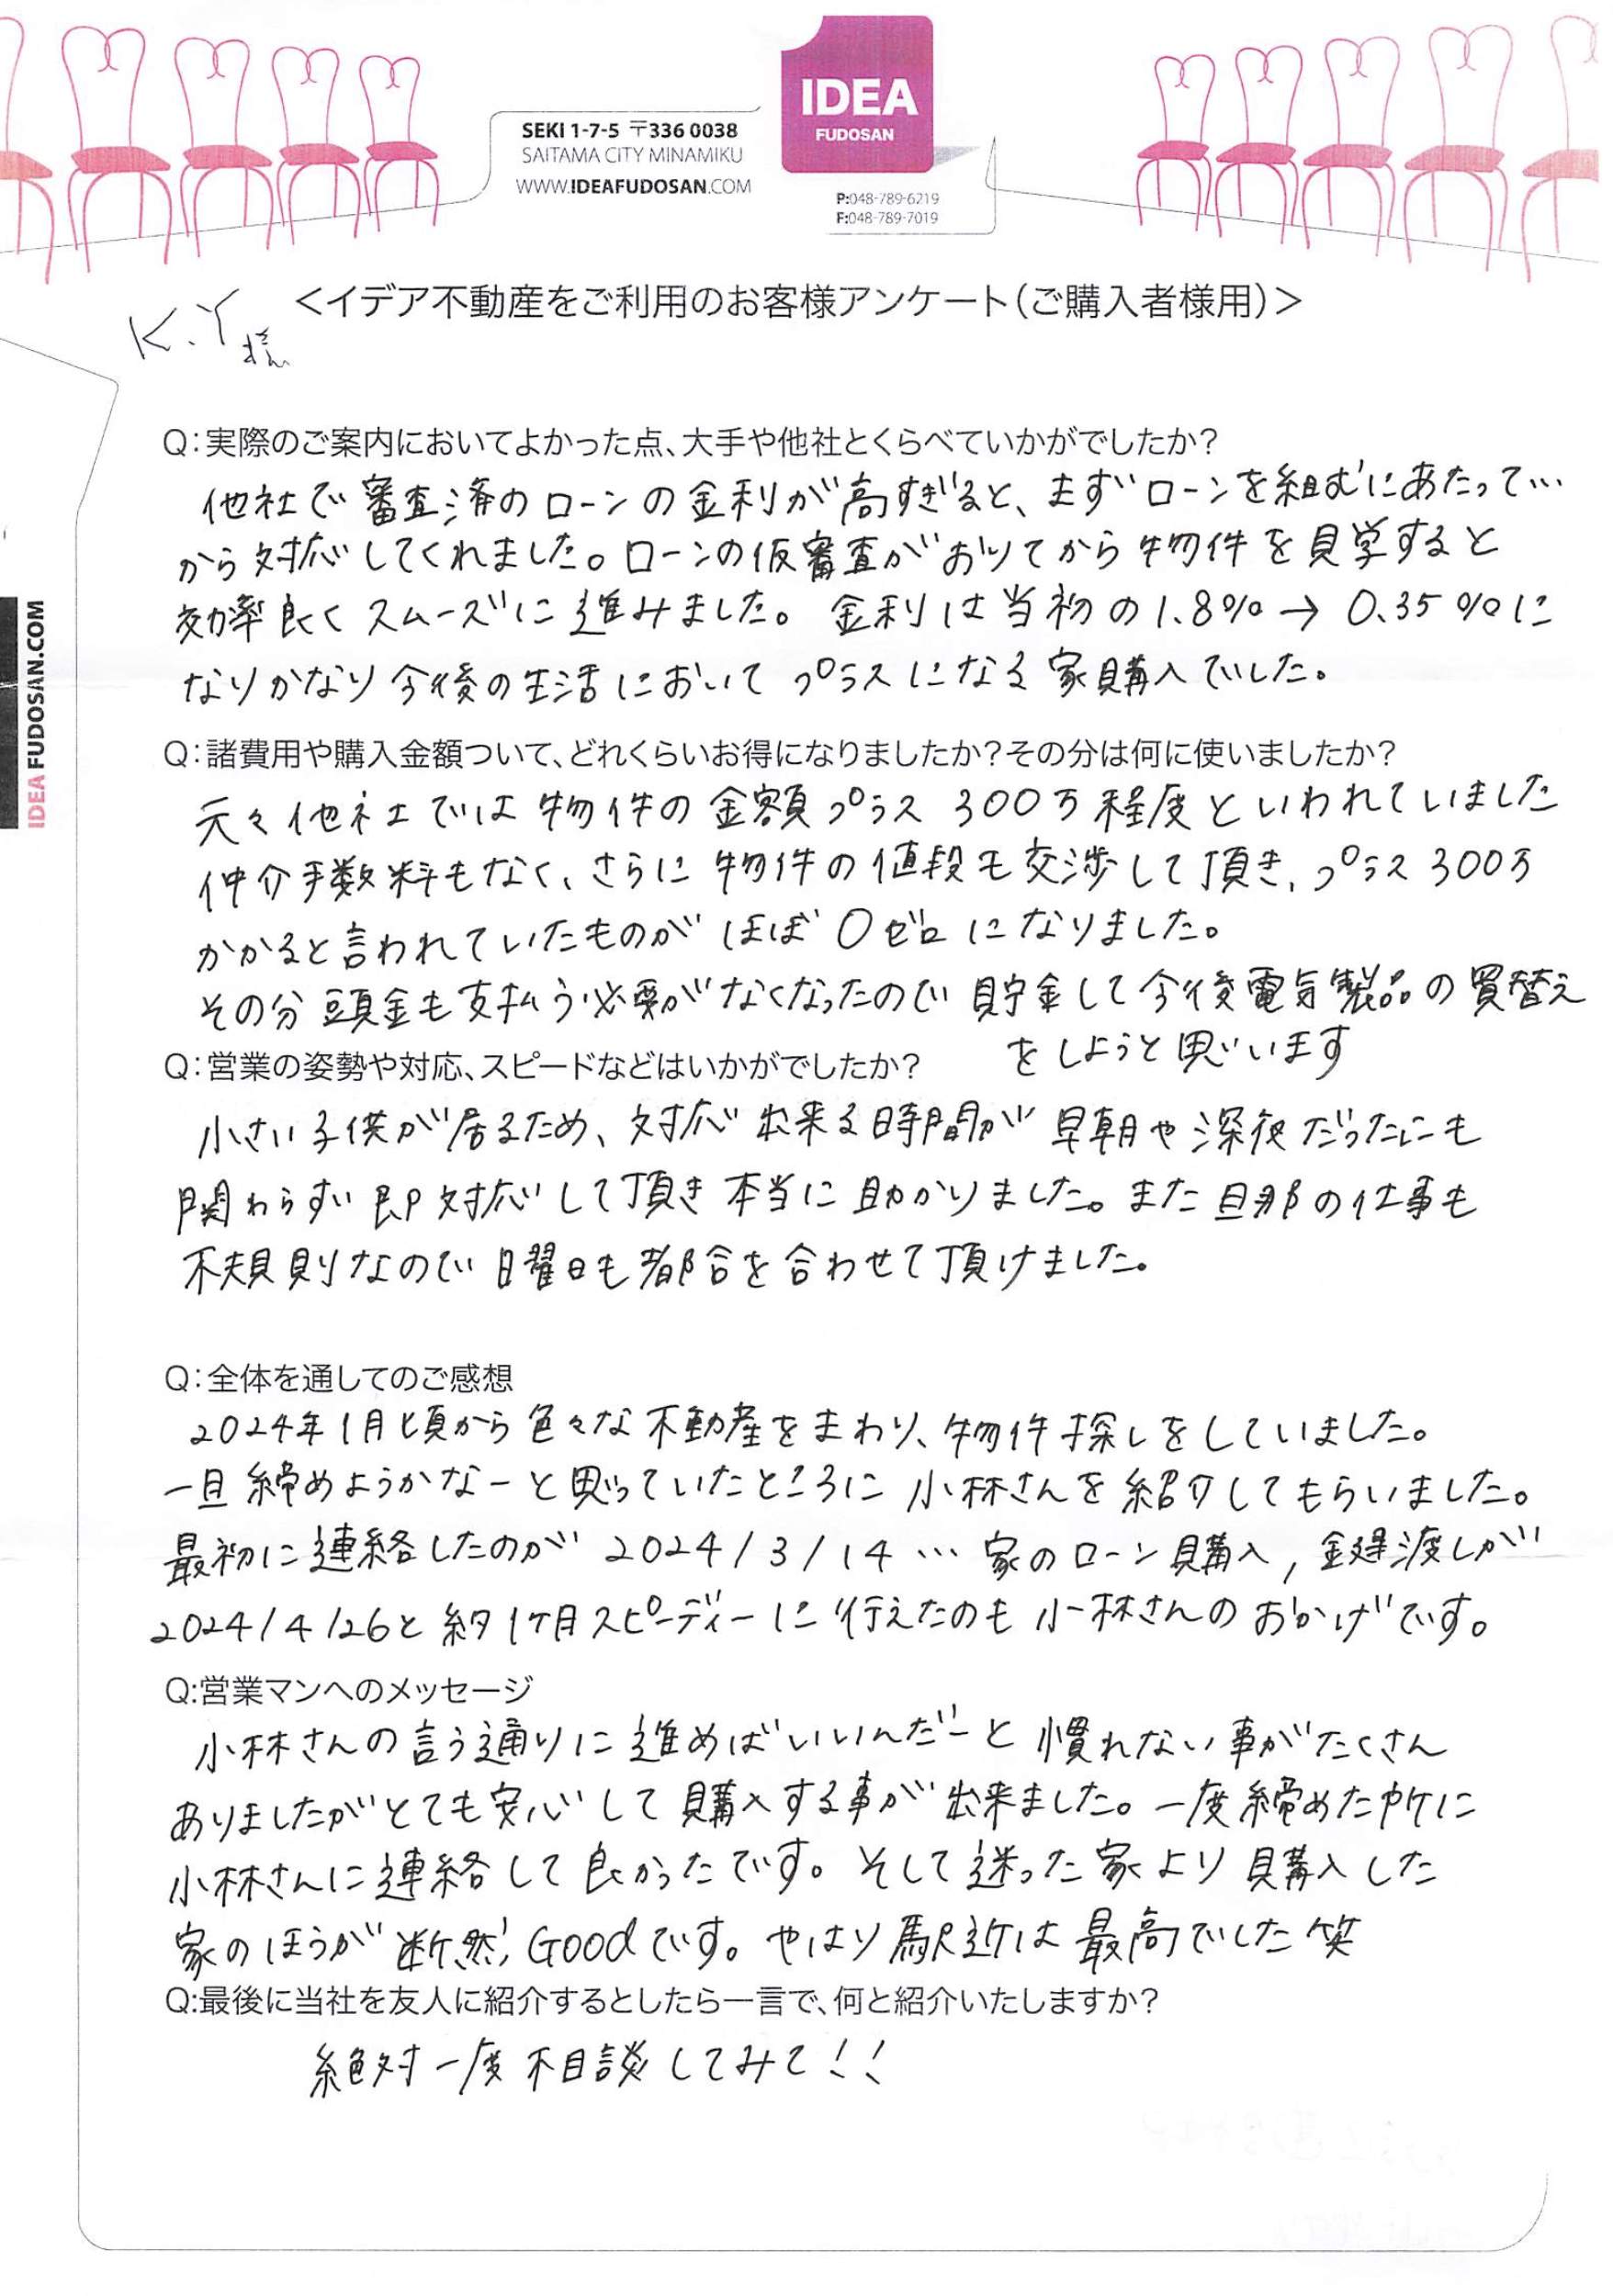 IDEA
FUDOSAN
SEKI 1-7-5 〒336 0038
SAITAMA CITY MINAMIKU
WWW.IDEAFUDOSAN.COM
P:048-789-6219
F:048-789-7019
<イデア不動産をご利用のお客様アンケート(ご購入者様用)>
K.Y様
IDEA FUDOSAN.COM
Q:実際のご案内においてよかった点、大手や他社とくらべていかがでしたか?
他社で審査済のローンの金利が高すぎると、まずローンを組むにあたって…
から対応してくれました。ローンの仮審査がおりてから物件を見学すると
効率良くスムーズに進みました。金利は当初の1.8%→0.35%に
なりかなり今後の生活においてプラスになる家購入でした。
Q:諸費用や購入金額ついて、どれくらいお得になりましたか?その分は何に使いましたか?
元々他社では物件の金額プラス300万程度といわれていました
仲介手数料もなく、さらに物件の値段も交渉して頂き、プラス300万
かかると言われていたものがほぼ0ゼロになりました。
その分頭金も支払う必要がなくなったので貯金して今後電気製品の買替え
をしようと思います
Q:営業の姿勢や対応、スピードなどはいかがでしたか?
小さい子供が居るため、対応出来る時間が早朝や深夜だったにも
関わらず即対応して頂き本当に助かりました。また旦那の仕事も
不規則なので日曜日も都合を合わせて頂けました。
Q:全体を通してのご感想
2024年1月頃から色々な不動産をまわり、物件探しをしていました。
一旦締めようかなーと思っていたところに小林さんを紹介してもらいました。
最初に連絡したのが2024/3/14…家のローン購入,鍵渡しが
2024/4/26と約1ヶ月スピーディーに行えたのも小林さんのおかげです。
Q:営業マンへのメッセージ
小林さんの言う通りに進めばいいんだーと慣れない事がたくさん
ありましたがとても安心して購入する事が出来ました。一度締めた所に
小林さんに連絡して良かったです。そして迷った家より購入した
家のほうが断然Goodです。やはり駅近は最高でした笑
Q:最後に当社を友人に紹介するとしたら一言で、何と紹介いたしますか?
絶対一度相談してみて!!